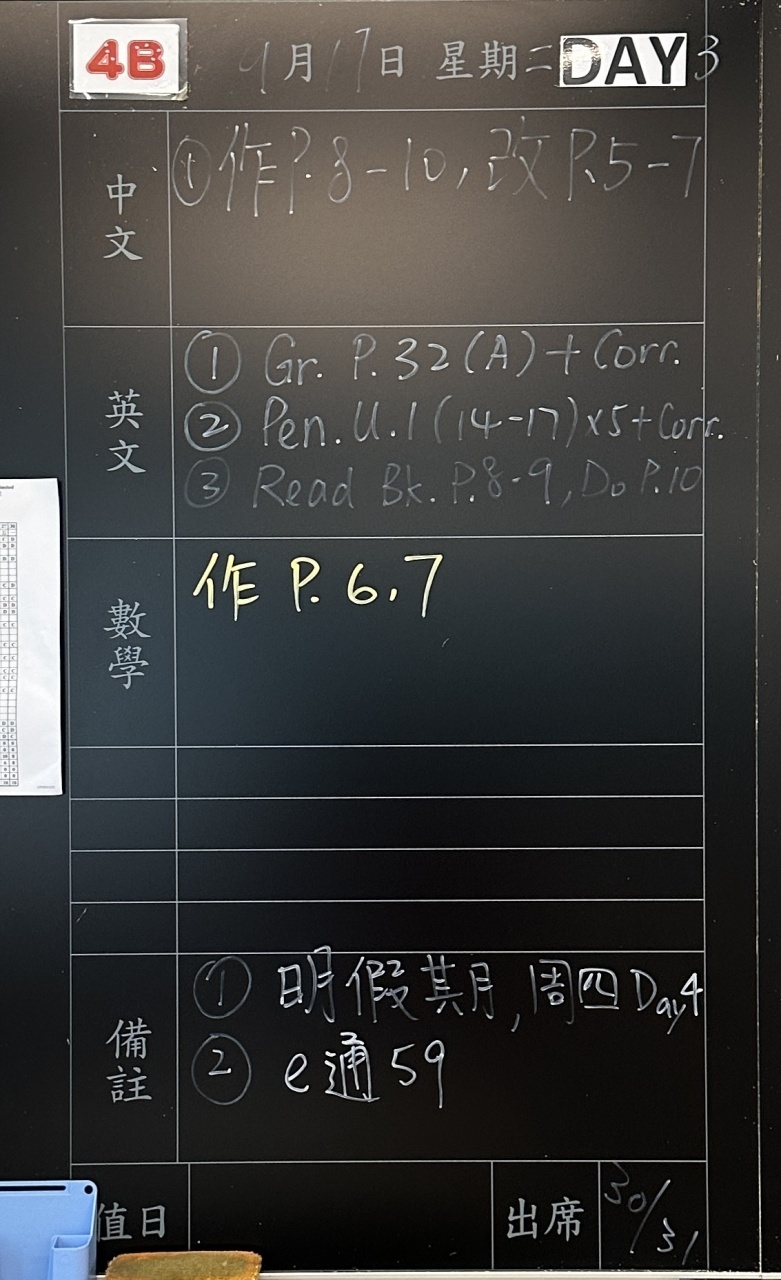 4B 9月17日 星期二 DAY 3
中文
① 作P.8-10, 改P.5-7
英文
① Gr. P.32(A)+Corr.
② Pen. U.1(14-17)x5+Corr.
③ Read Bk. P.8-9, Do P.10
數學
作 P. 6,7
備註
① 明假期, 周四 Day4
② e通59
值日
出席 30/31